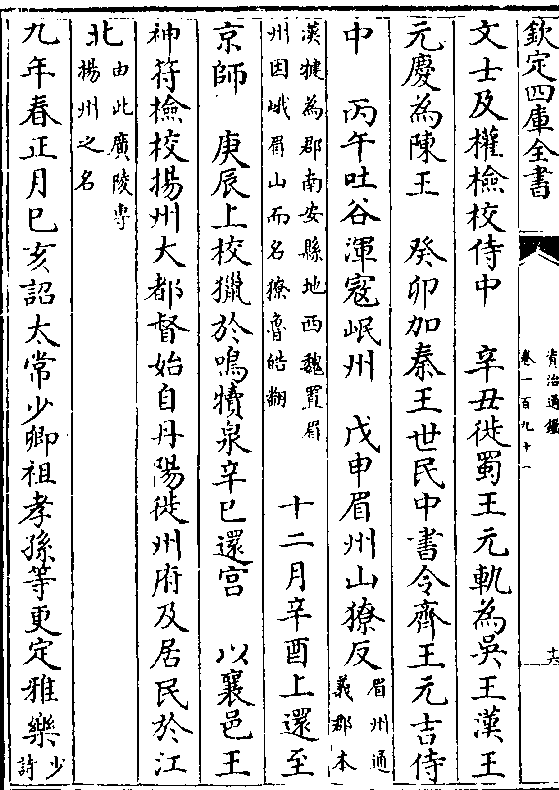 欽定四庫全書
資治通鑑
卷一百九十一
十六
文士及權檢校侍中　辛丑徙蜀王元軌為吳王漢王
元慶為陳王　癸卯加秦王世民中書令齊王元吉侍
中　丙午吐谷渾寇岷州　戊申眉州山獠反
眉州通
義郡本
漢犍為郡南安縣地西魏置眉
州因峨眉山而名獠魯皓翻
十二月辛酉上還至
京師　庚辰上校獵於鳴犢泉辛巳還宫　以襄邑王
神符檢校揚州大都督始自丹陽徙州府及居民於江
北
由此廣陵専
揚州之名
九年春正月己亥詔太常少卿祖孝孫等更定雅樂
少
詩